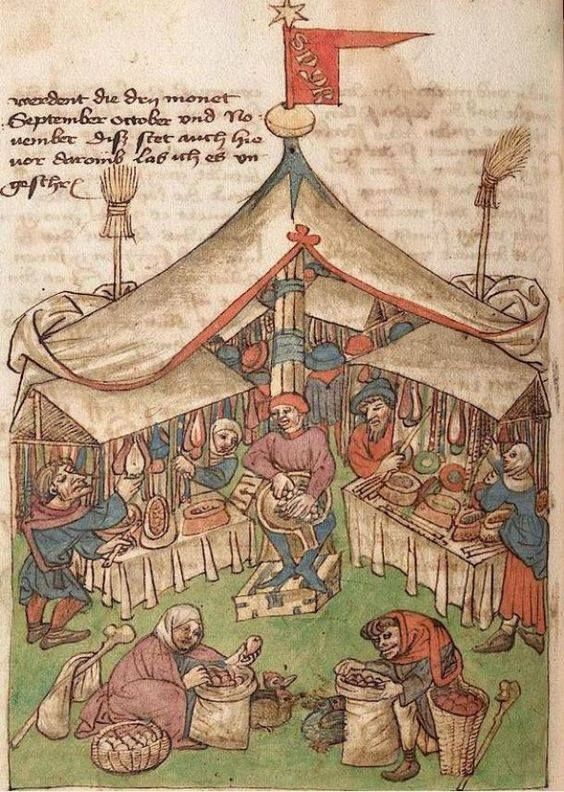 werdent die drij monet
September october vnd No:
uember diß stet auch hie
vor daromb las ich es vn
geschr